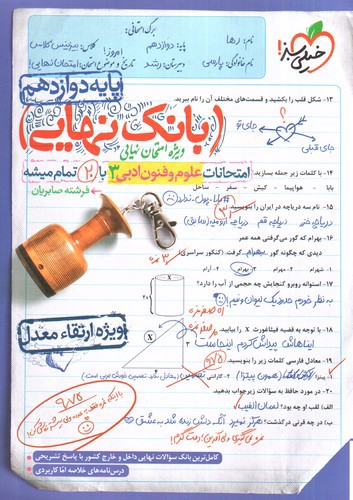 خیلی سبز!
برگ امتحانی:
نام: رها
پایه: دوازدهم
نام خانوادگی: پارسی
دبیرستان: رشد
تاریخ و موضوع امتحان: امتحان نهایی!
۱۳- شکل قلب را بکشید و قسمت‌های مختلف آن را نام ببرید.
پایه دوازدهم
(بانک نهایی)
ویژه امتحان نهایی
جای تو
جای قبلی
۱۴- با کلمات زیر جمله بسازید.
امتحانات علوم و فنون ادبی ۳ با ۲۰ تمام میشه
پایا - هواپیما - کیش - سفر - ساحل
فرشته صابریان
۱۵- نام سه دریاچه در ایران را بنویسید.
دریاچه خزر دریاچه قم دریاچه ارومیه (سابق)
۱۶- بهرام که گور می‌گرفتی همه عمر
دیدی که چگونه گور بهرام گرفت. (کنکور سراسری)
۱- شهرام ۲- بهرام ۳- بهرام ۴- آرام
۱۷- استوانه روبرو گنجایش چه حجمی از آب را دارد؟
به نظر خودم حدود یک لیوان و نیم!
۱۸- با توجه به قضیه فیثاغورث X را بیابید.
ایناهاش پیداش کردم اینجاست
ویژه ارتقاء معدل
۱۹- معادل فارسی کلمات زیر را بنویسید.
۲۰- در مورد حافظ به سوالات زیر جواب بدهید.
الف) لقب او چه بود؟ لسان‌الغیب!
ب) در چه قرنی درگذشت؟ هرگز نمیرد آنکه دلش زنده شد به عشق
کامل‌ترین بانک سؤالات نهایی داخل و خارج کشور با پاسخ تشریحی
درس‌نامه‌های خلاصه اما کاربردی